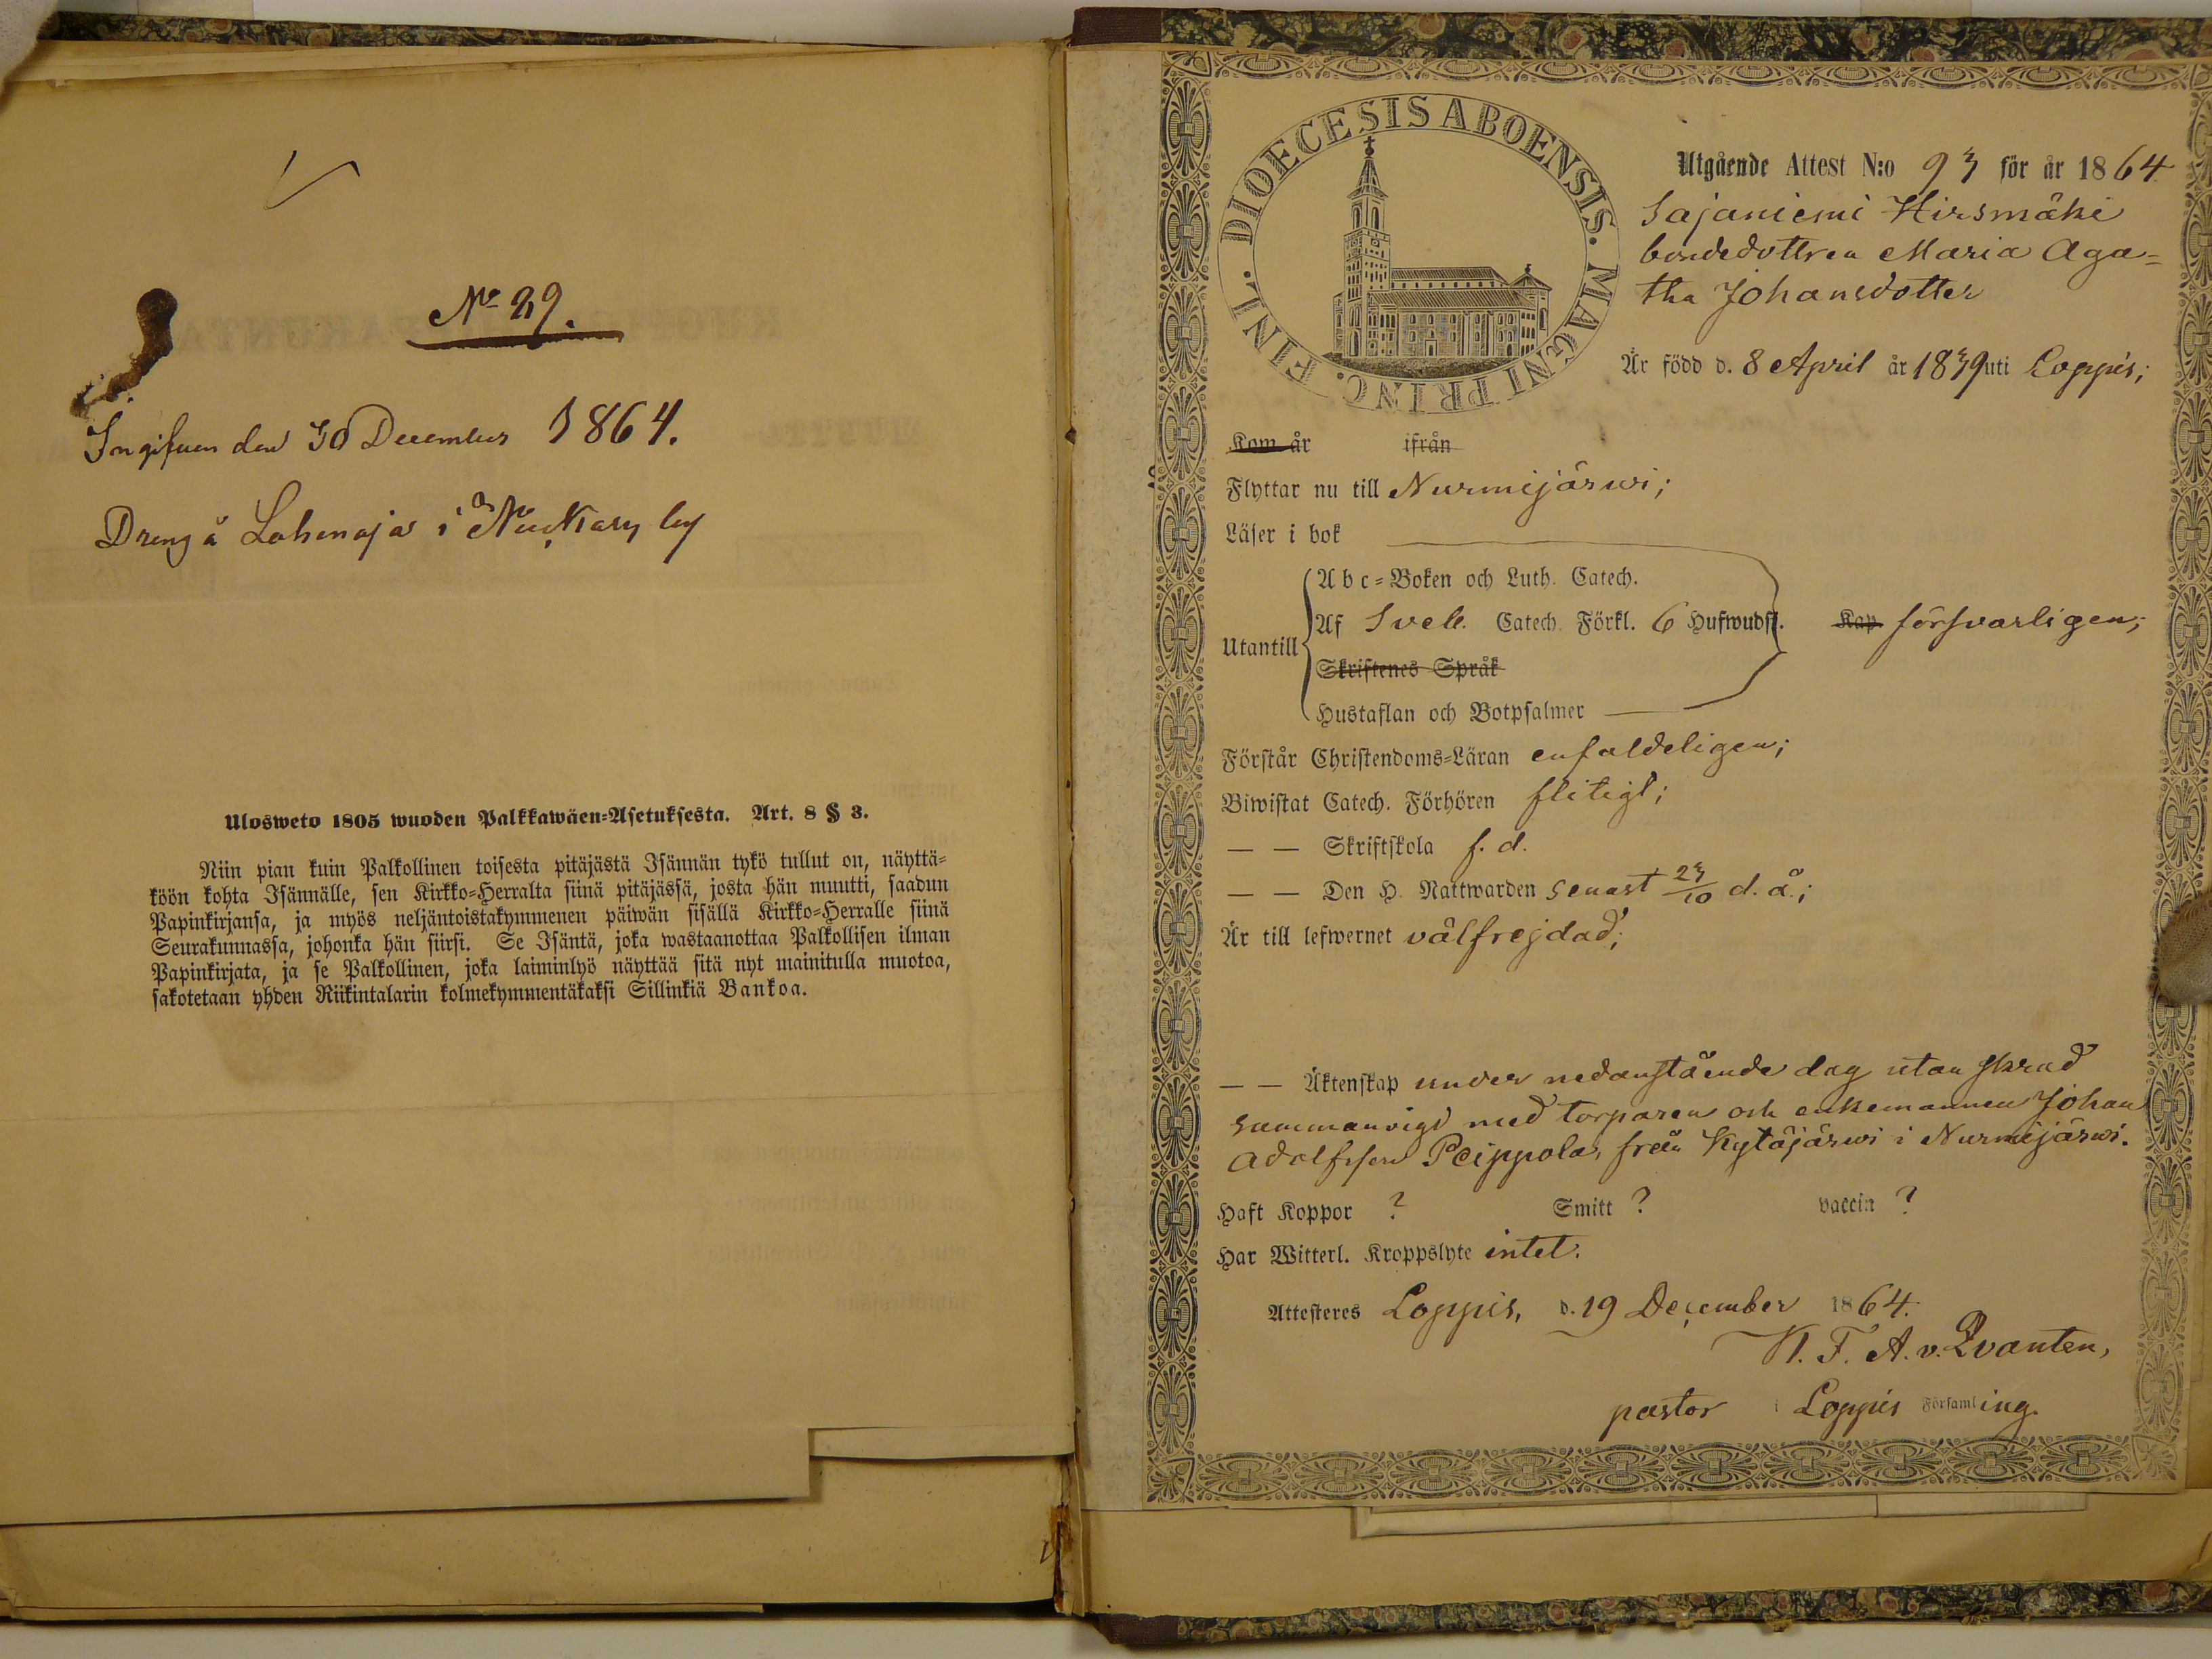 No 29.
Ingifven den 30 December 1864.
Dreng å Lahenaja i Nuckary by
Ulosweto 1805 wuoden Palkkawäen-Asetuksesta. Art. 8 § 3.
Niin pian kuin Palkollinen toisesta pitäjästä Isännän tykö tullut on, näyttä-
köön kohta Isännälle, sen Kirkko-Herralta siinä pitäjässä, josta hän muutti, saadun
Papinkirjansa, ja myös neljäntoistakymmenen päiwän sisällä Kirkko-Herralle siinä
Seurakunnassa, johonka hän siirsi. Se Isäntä, joka wastaanottaa Palkollisen ilman
Papinkirjata, ja se Palkollinen, joka laiminlyö näyttää sitä nyt mainitulla muotoa,
sakotetaan yhden Riikintalarin kolmekymmentäkaksi Sillinkiä Bankoa.
DIOECESIS ABOENSIS. MAGNI PRINC. FINL.
Utgående Attest N:o 93 för år 1864
Sajaniemi Hirsmäki
bondedottren Maria Aga=
tha Johansdotter
Är född d. 8 April år 1839 uti Loppis;
Kom år ifrån
Flyttar nu till Nurmijärwi;
Läser i bok
Utantill
Abc-Boken och Luth. Catech.
Af Sveb. Catech. Förkl. 6 Hufwudst. Kap försvarligen;
Skriftenes Språk
Hustaflan och Botpsalmer
Förstår Christendoms-Läran enfaldeligen;
Biwistat Catech. Förhören flitigt;
— — Skriftskola f. d.
— — Den H. Nattwarden senast 23/10 d. å.;
Är till lefwernet välfrejdad;
— — Äktenskap under nedanstående dag utan skrud
sammanvigd med torparen och enkemannen Johan
Adolfsson Peippola, från Kytäjärwi i Nurmijärwi.
Haft Koppor ? Smitt ? vaccin ?
Har Witterl. Kroppslyte intet.
Attesteres Loppis, d. 19 December 1864.
K. F. A. v. Qvanten,
pastor i Loppis Församling.